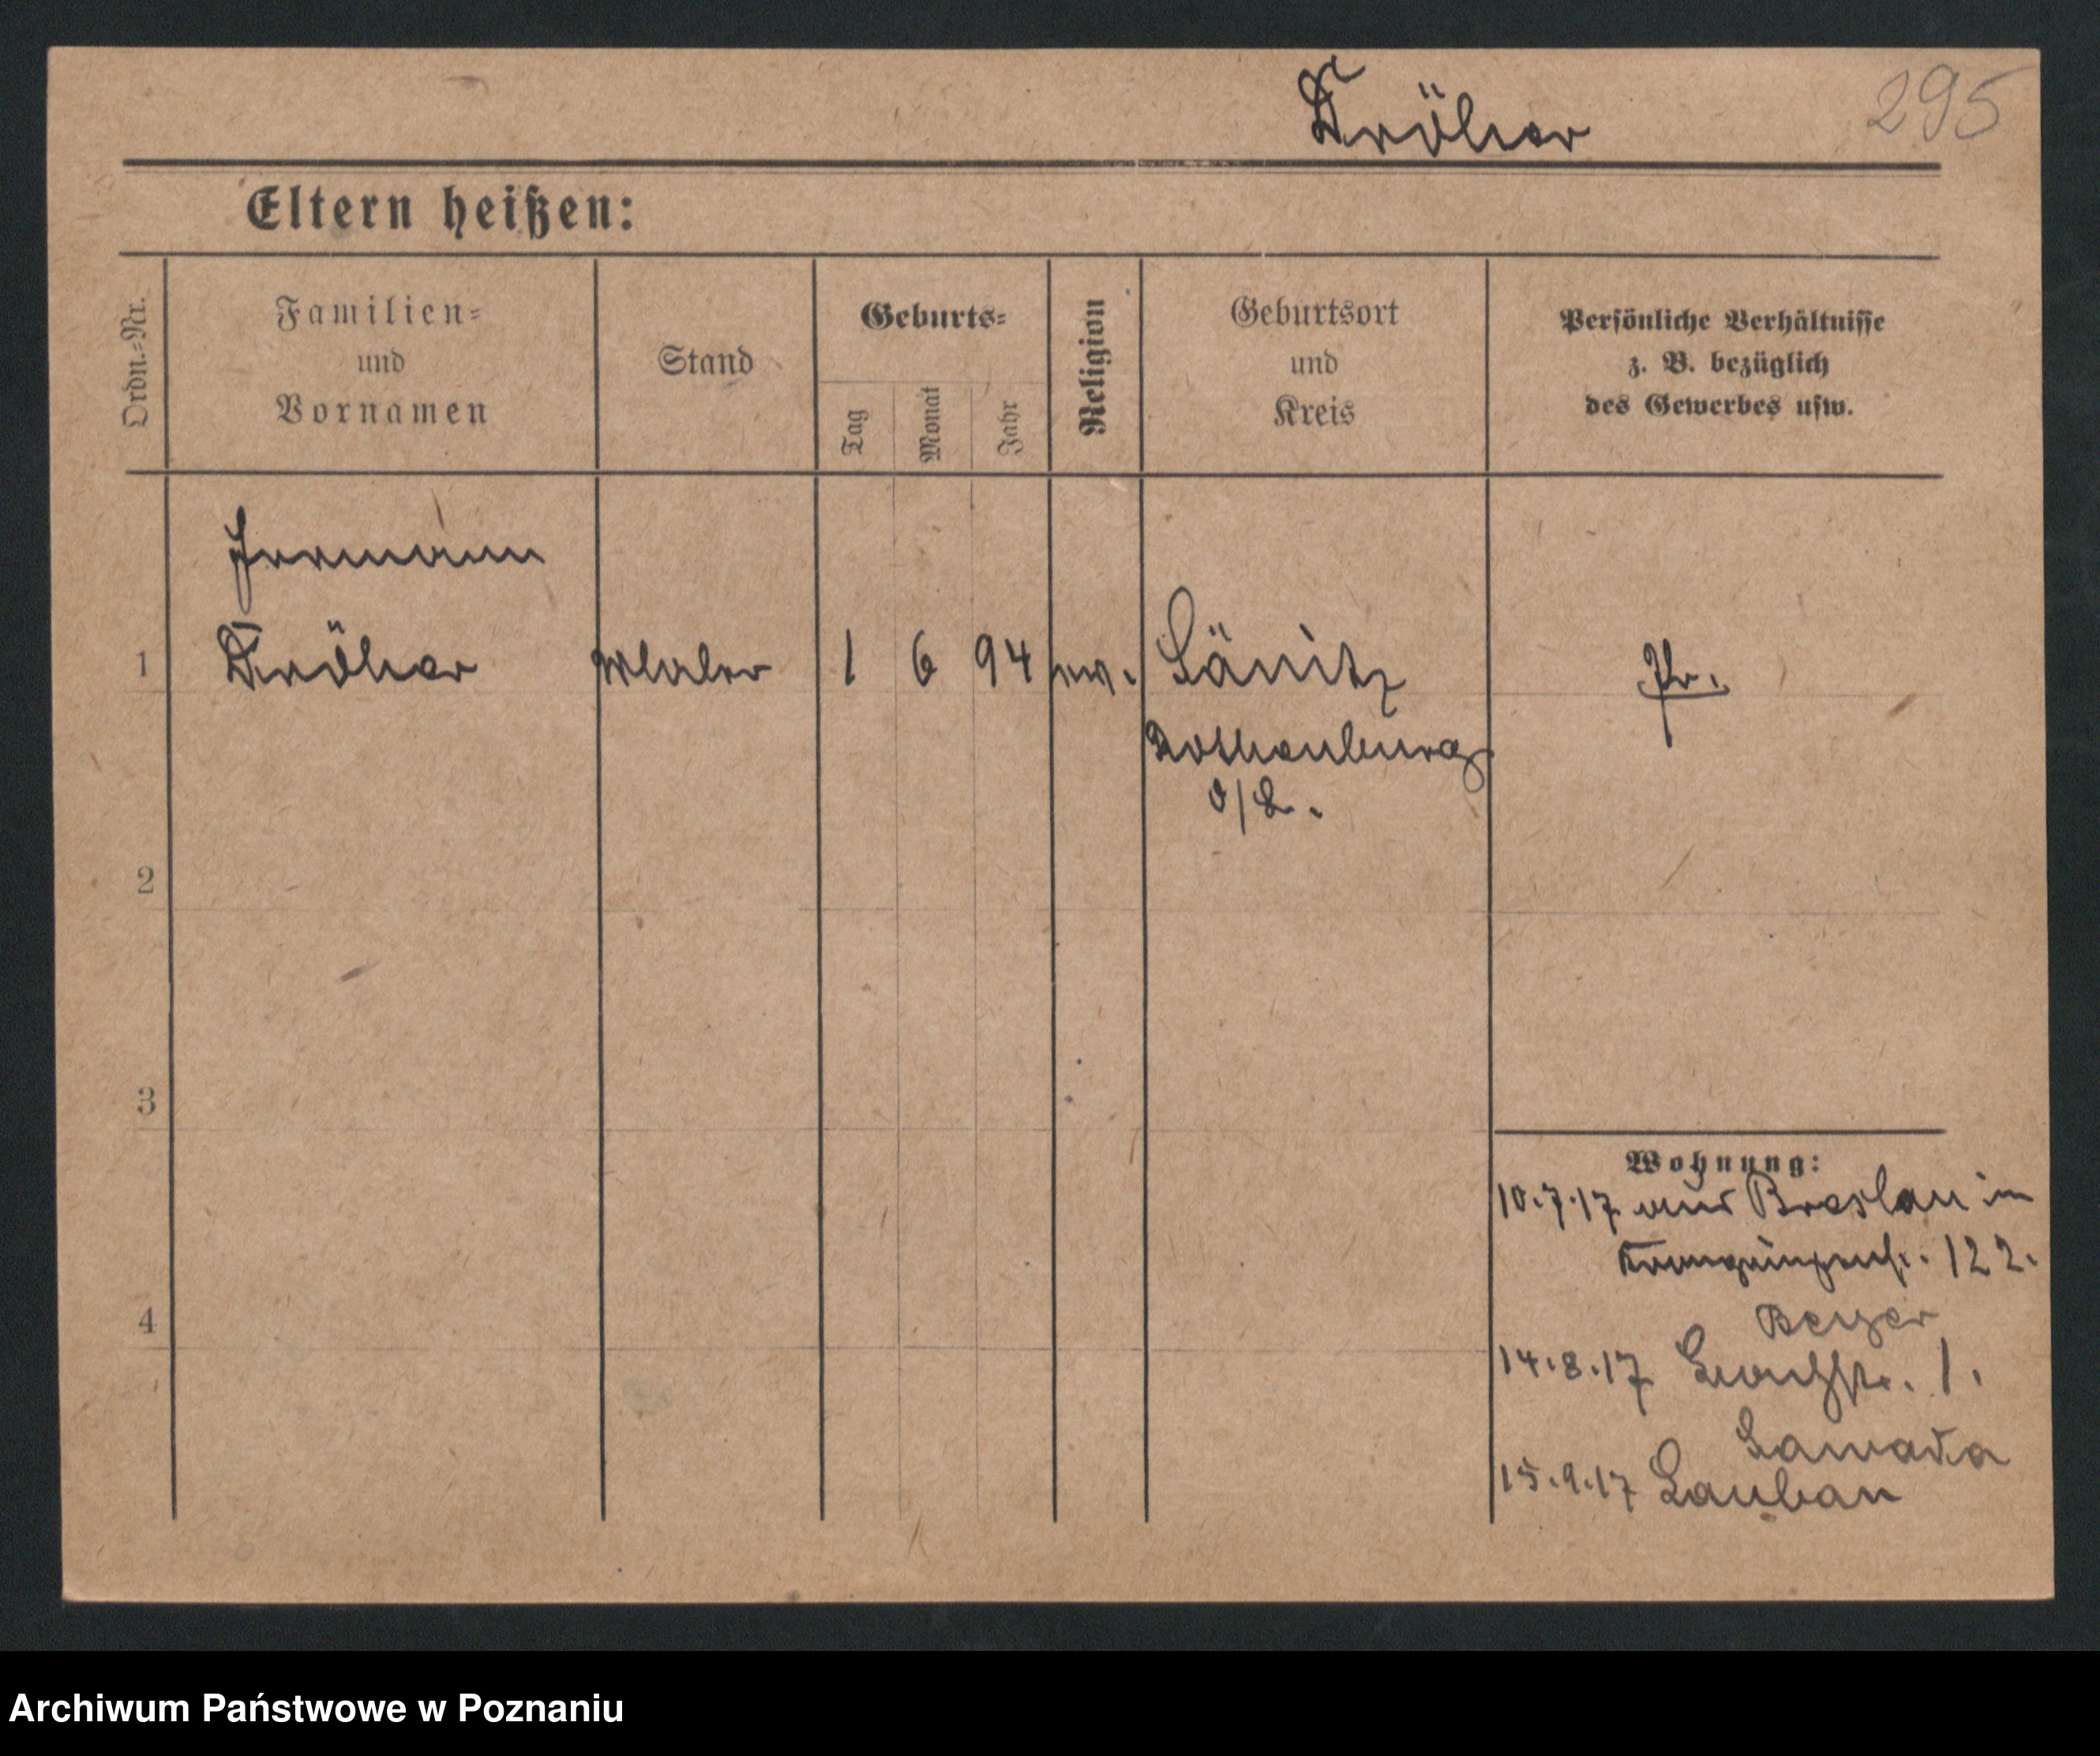 Tröher
295
Eltern heißen:
Ordn.=Nr.
Familien=
und
Vornamen
Stand
Geburts=
Tag
Monat
Jahr
Religion
Geburtsort
und
Kreis
Persönliche Verhältnisse
z. B. bezüglich
des Gewerbes usw.
Hermann
1 Tröher Maler 1 6 94 ev. Sänitz Pr.
Rothenburg
O/L.
2
3
4
Wohnung:
10.7.17 aus Breslau in
Kronprinzenstr. 122.
Beyer
14.8.17 1.
15.9.17 Lauban
Archiwum Państwowe w Poznaniu